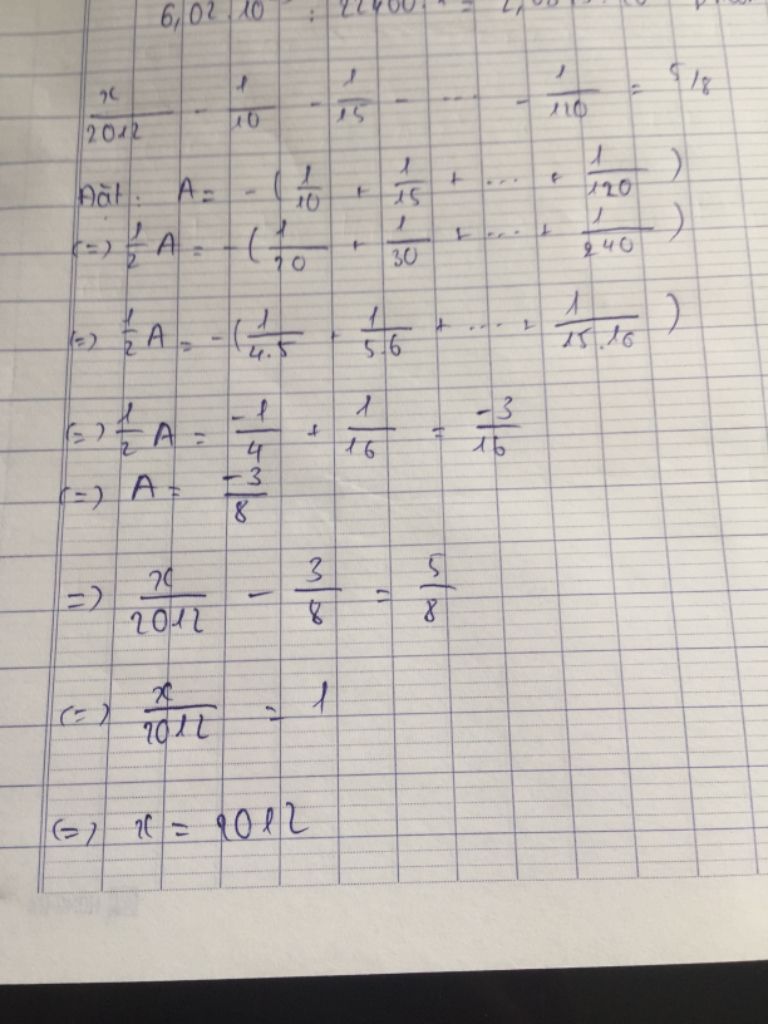 6,02.10 : 22400.
x/2012 - 1/10 - 1/15 - .... - 1/120 = 5/8
Đặt: A = - ( 1/10 + 1/15 + .... + 1/120 )
(=) 1/2 A = - ( 1/20 + 1/30 + .... + 1/240 )
(=) 1/2 A = - ( 1/4.5 + 1/5.6 + .... + 1/15.16 )
(=) 1/2 A = -1/4 + 1/16 = -3/16
(=) A = -3/8
=) x/2012 - 3/8 = 5/8
(=) x/2012 = 1
(=) x = 2012